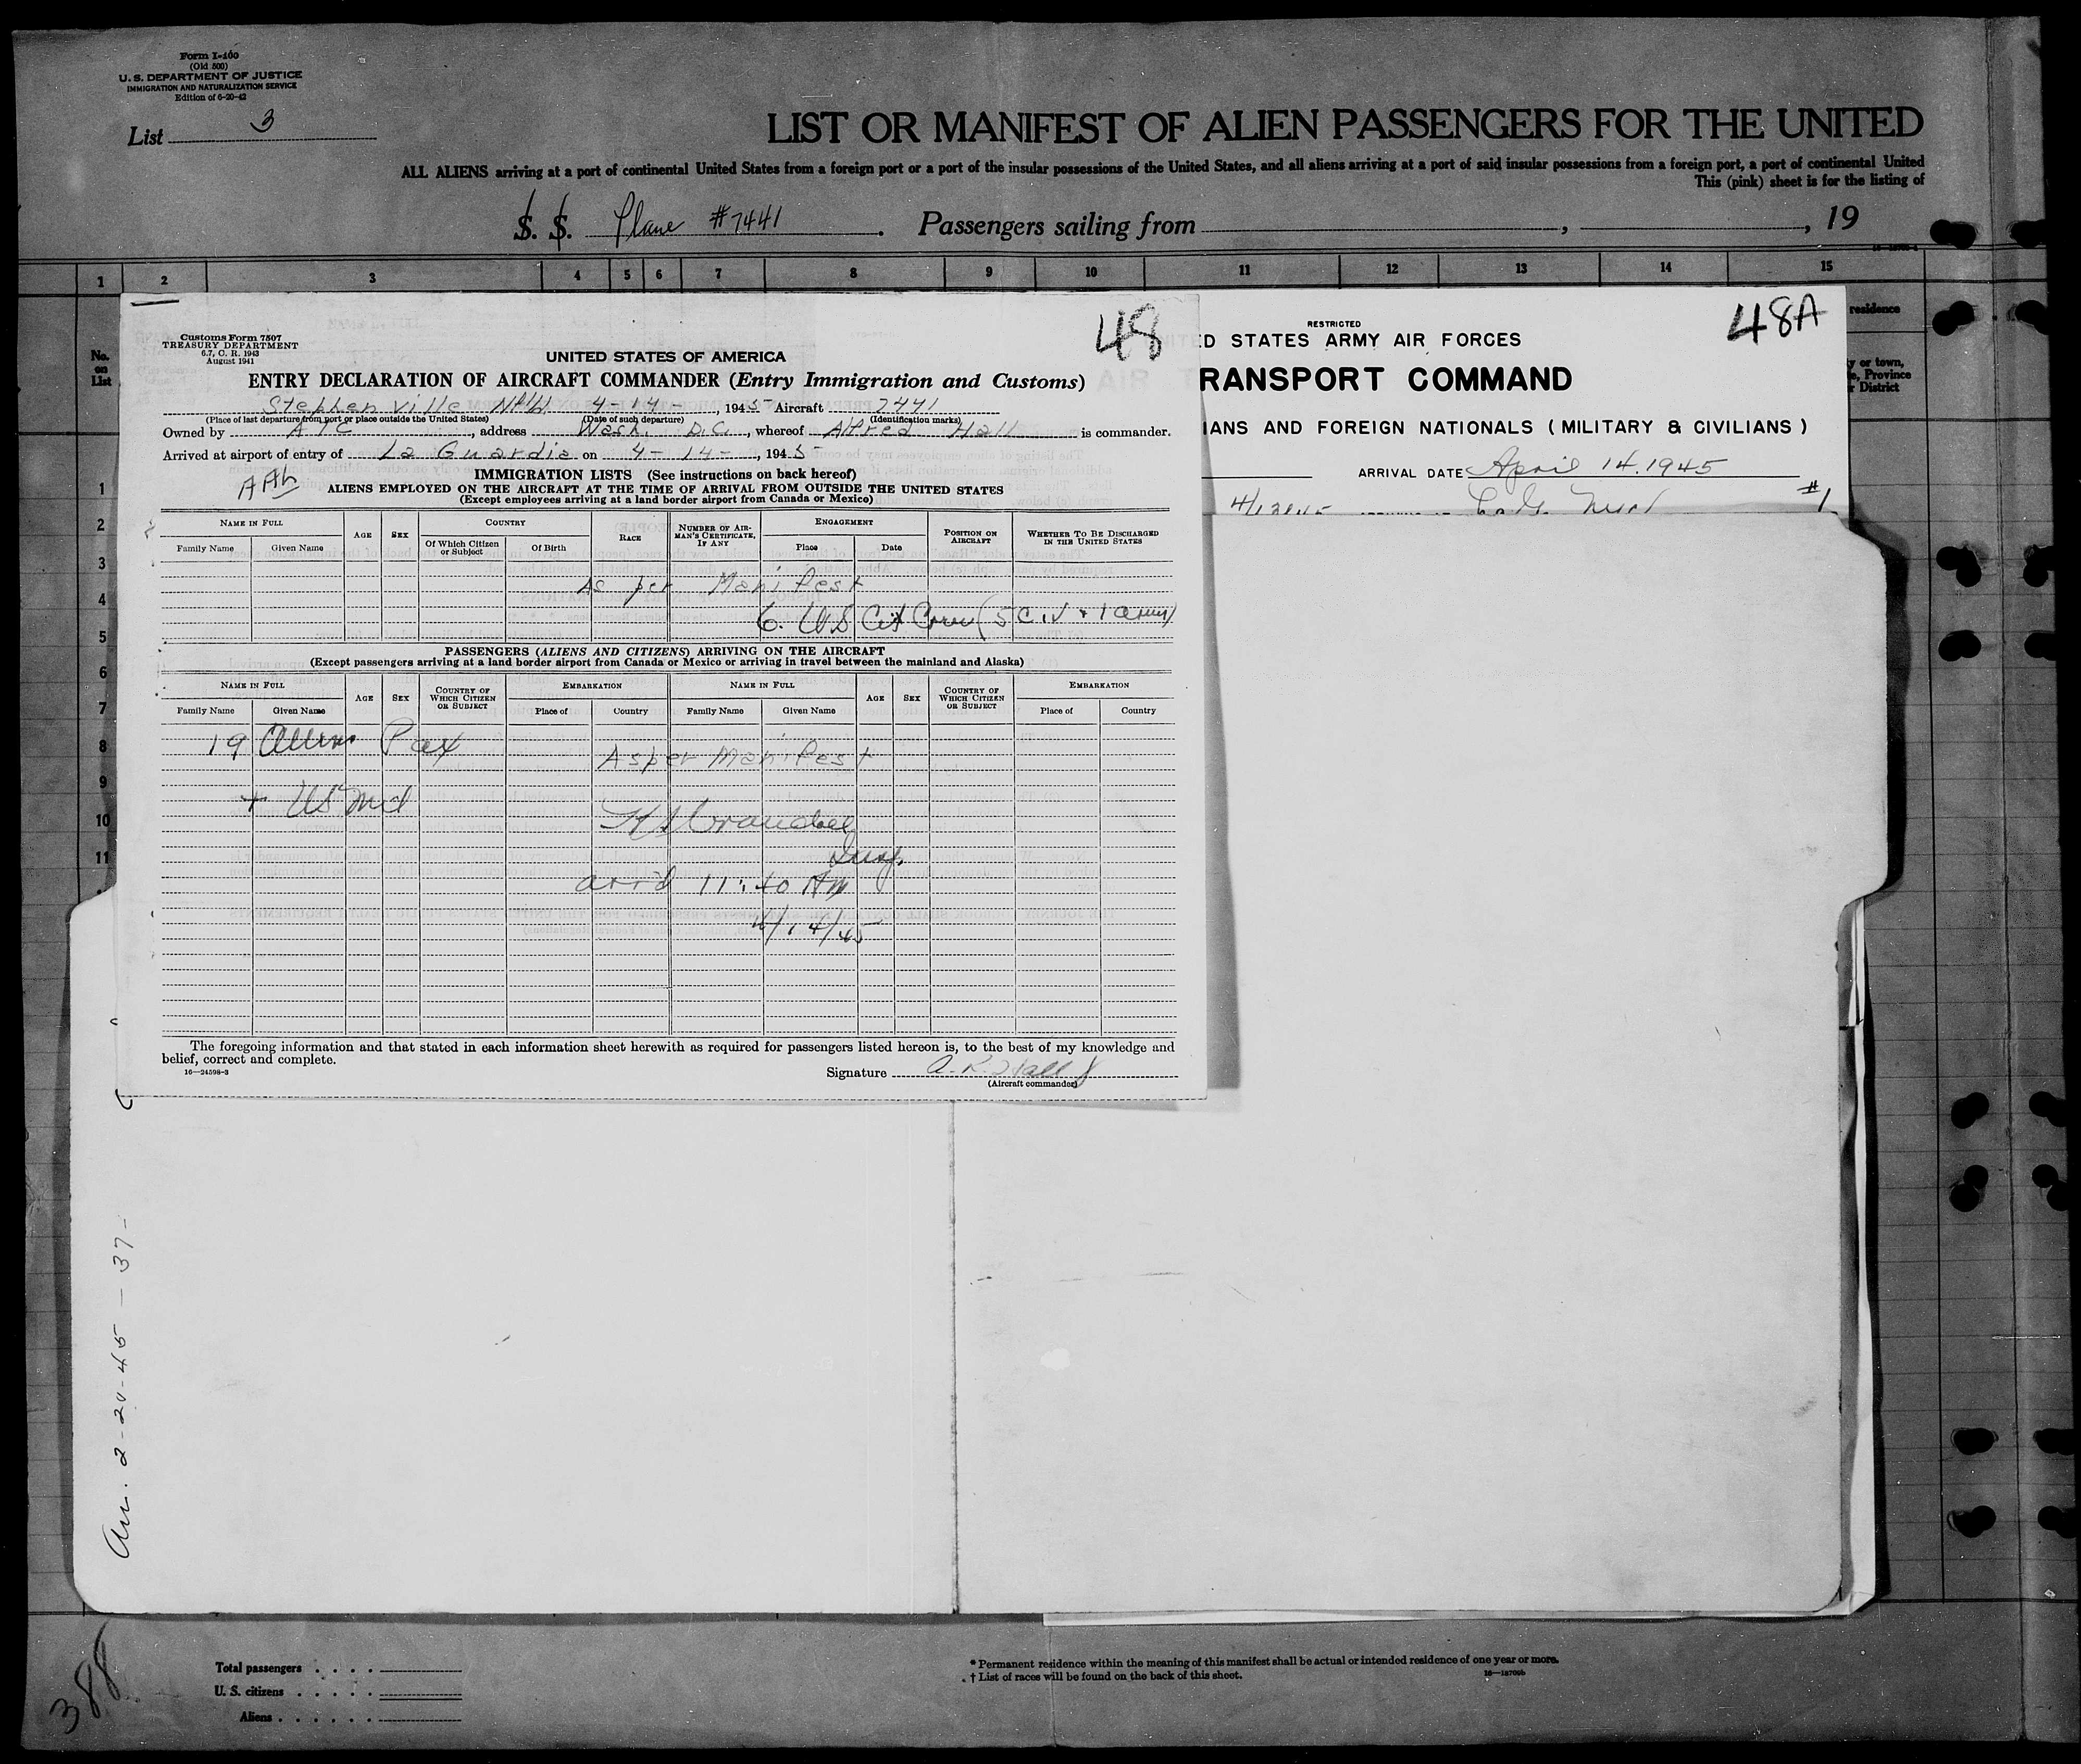 Form I-400
(Old 500)
U. S. DEPARTMENT OF JUSTICE
IMMIGRATION AND NATURALIZATION SERVICE
Edition of 6-20-42
List 3
LIST OR MANIFEST OF ALIEN PASSENGERS FOR THE UNITED
ALL ALIENS arriving at a port of continental United States from a foreign port or a port of the insular possessions of the United States, and all aliens arriving at a port of said insular possessions from a foreign port, a port of continental United
This (pink) sheet is for the listing of
S. S. Plane #7441. Passengers sailing from , , 19
1 2 3 4 5 6 7 8 9 10 11 12 13 14 15
No. on List
residence
y or town,
e, Province
r District
1
2
3
4
5
6
7
8
9
10
11
48
Customs Form 7507
TREASURY DEPARTMENT
6.7, C. R. 1943
August 1941
UNITED STATES OF AMERICA
ENTRY DECLARATION OF AIRCRAFT COMMANDER (Entry Immigration and Customs)
Stephenville Nfld 4-14-, 1945 Aircraft 7441
(Place of last departure from port or place outside the United States) (Date of such departure) (Identification marks)
Owned by ATC, address Wash. D.C., whereof Alfred Hall is commander.
Arrived at airport of entry of La Guardia on 4-14-, 1945
IMMIGRATION LISTS (See instructions on back hereof)
ALIENS EMPLOYED ON THE AIRCRAFT AT THE TIME OF ARRIVAL FROM OUTSIDE THE UNITED STATES
(Except employees arriving at a land border airport from Canada or Mexico)
NAME IN FULL AGE SEX COUNTRY RACE NUMBER OF AIRMAN'S CERTIFICATE, IF ANY ENGAGEMENT POSITION ON AIRCRAFT WHETHER TO BE DISCHARGED IN THE UNITED STATES
Family Name Given Name Of Which Citizen or Subject Of Birth Place Date
As per Manifest
6. US Cit Crew (5 Civ + 1 Army)
PASSENGERS (ALIENS AND CITIZENS) ARRIVING ON THE AIRCRAFT
(Except passengers arriving at a land border airport from Canada or Mexico or arriving in travel between the mainland and Alaska)
NAME IN FULL AGE SEX COUNTRY OF WHICH CITIZEN OR SUBJECT EMBARKATION NAME IN FULL AGE SEX COUNTRY OF WHICH CITIZEN OR SUBJECT EMBARKATION
Family Name Given Name Place of Country Family Name Given Name Place of Country
19 Pax
As per Manifest
+ US
Insp.
arr'd 11:40 AM
4/14/45
The foregoing information and that stated in each information sheet herewith as required for passengers listed hereon is, to the best of my knowledge and
belief, correct and complete.
16—24598-3
Signature A. K. Hall
(Aircraft commander)
48A
RESTRICTED
D STATES ARMY AIR FORCES
RANSPORT COMMAND
IANS AND FOREIGN NATIONALS (MILITARY & CIVILIANS)
ARRIVAL DATE April 14, 1945
#1
Arr. 2-20-45 - 37-
388
Total passengers
U. S. citizens
Aliens
* Permanent residence within the meaning of this manifest shall be actual or intended residence of one year or more.
† List of races will be found on the back of this sheet.